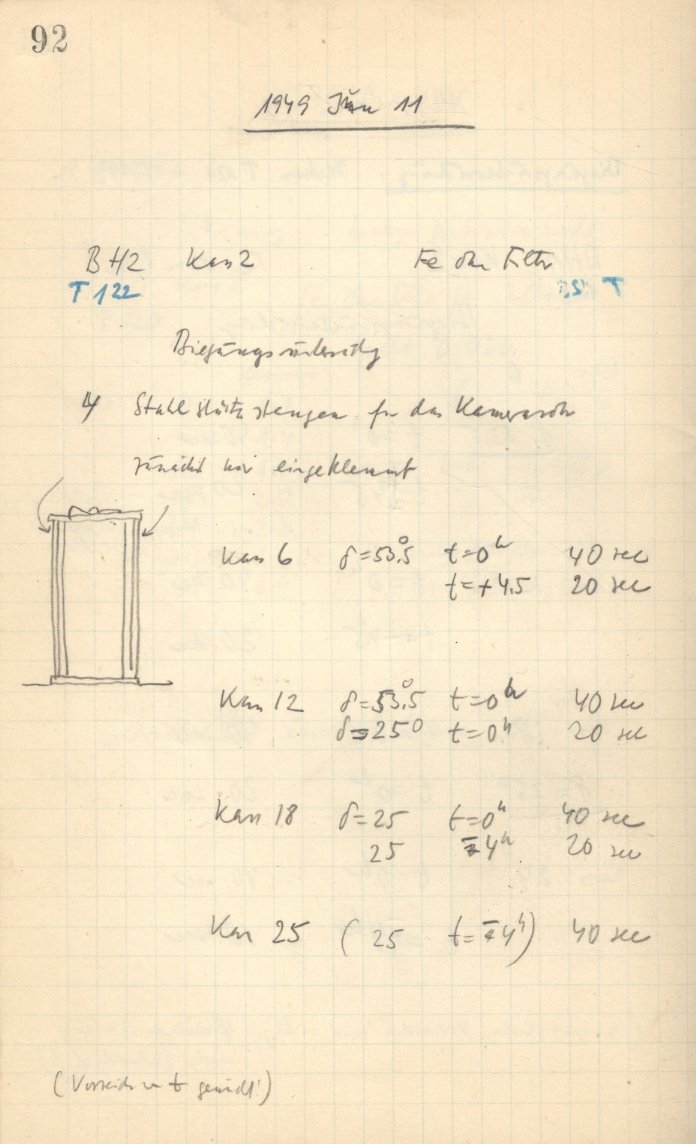 92
1949 Jän 11
BH2 Kan 2 Fe ohne Filter
T 122
4 Stahl stangen für das Kamerarohr
zunächst nur eingeklemmt
Kan 6 δ=53°.5 t=0h 40 sec
t=+4.5 20 sec
Kan 12 δ=53°.5 t=0h 40 sec
δ=25° t=0h 20 sec
Kan 18 δ=25 t=0h 40 sec
25 4h 20 sec
Kan 25 ( 25 t= 4h) 40 sec
(Vorzeichen t !)